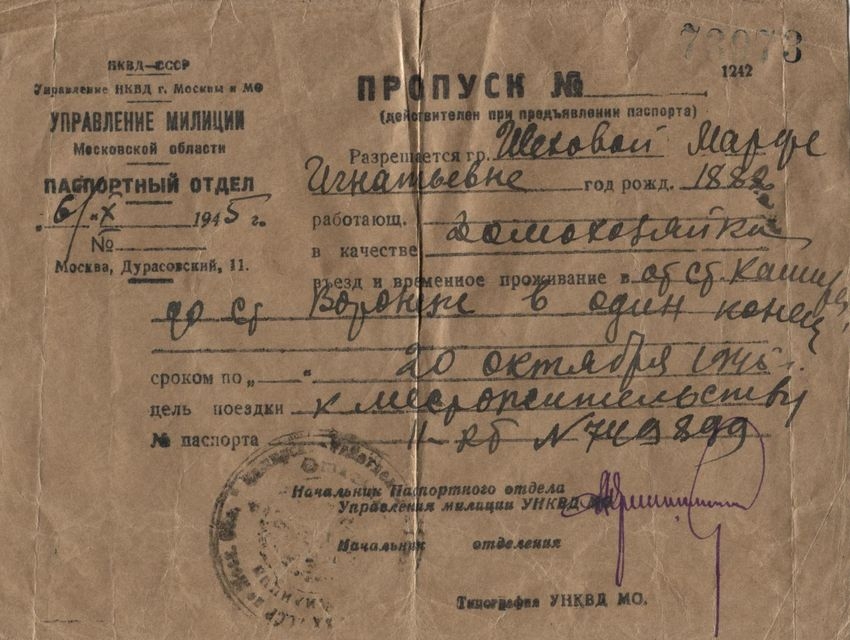 НКВД—СССР
Управление НКВД г. Москвы и МО
УПРАВЛЕНИЕ МИЛИЦИИ
Московской области
ПАСПОРТНЫЙ ОТДЕЛ
"6" X 1945 г.
№
Москва, Дурасовский, 11.
1242
ПРОПУСК №
(действителен при предъявлении паспорта)
Разрешается гр. Шеховой Марфе
Игнатьевне год рожд. 1882
работающ.
в качестве домохозяйка
въезд и временное проживание в от ст Кашира
до ст Воронеж в один конец
сроком по „—" 20 октября 1945 г.
цель поездки к местожительству
№ паспорта II-РБ N 749899
Начальник Паспортного отдела
Управления милиции УНКВД
Начальник отделения
Типография УНКВД МО.